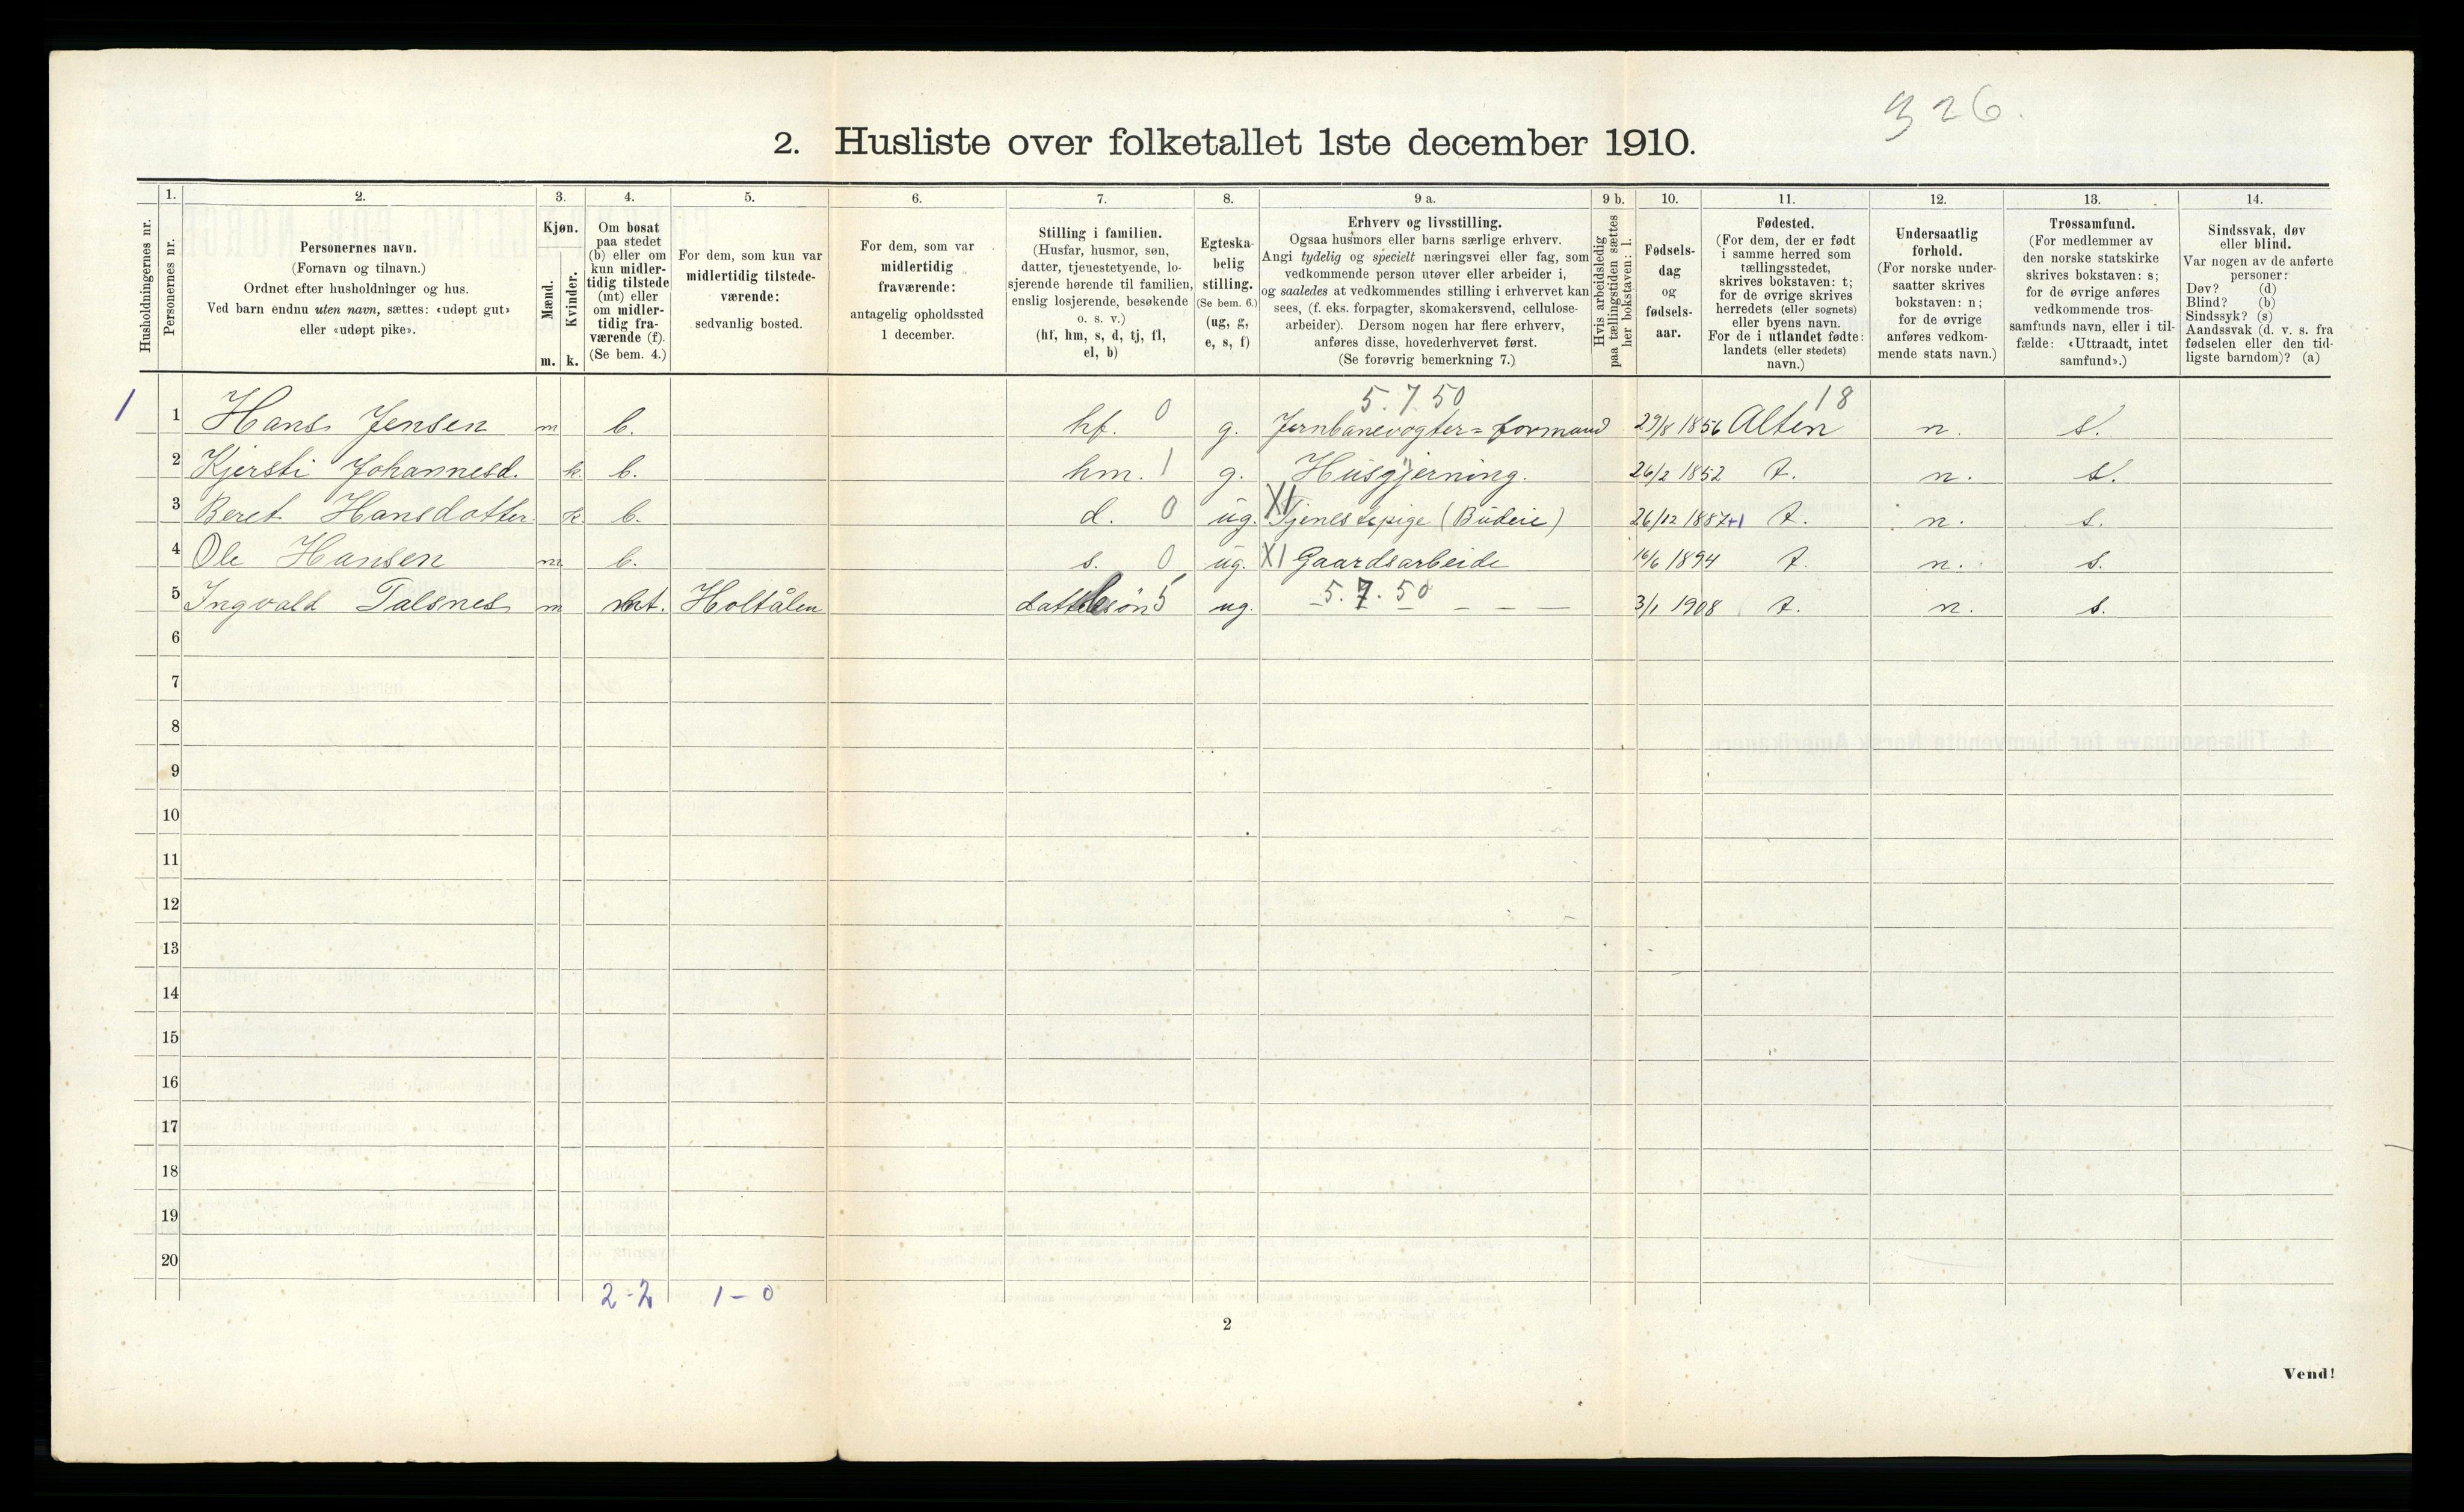 326.
2. Husliste over folketallet 1ste december 1910.
Husholdningernes nr.
1. Personernes nr.
2. Personernes navn.
(Fornavn og tilnavn.)
Ordnet efter husholdninger og hus.
Ved barn endnu uten navn, sættes: «udøpt gut»
eller «udøpt pike».
3. Kjøn.
Mænd. Kvinder.
m. k.
4. Om bosat
paa stedet
(b) eller om
kun midler-
tidig tilstede
(mt) eller
om midler-
tidig fra-
værende (f).
(Se bem. 4.)
5. For dem, som kun var
midlertidig tilstede-
værende:
sedvanlig bosted.
6. For dem, som var
midlertidig
fraværende:
antagelig opholdssted
1 december.
7. Stilling i familien.
(Husfar, husmor, søn,
datter, tjenestetyende, lo-
sjerende hørende til familien,
enslig losjerende, besøkende
o. s. v.)
(hf, hm, s, d, tj, fl,
el, b)
8. Egteska-
belig
stilling.
(Se bem. 6.)
(ug, g,
e, s, f)
9 a. Erhverv og livsstilling.
Ogsaa husmors eller barns særlige erhverv.
Angi tydelig og specielt næringsvei eller fag, som
vedkommende person utøver eller arbeider i,
og saaledes at vedkommendes stilling i erhvervet kan
sees, (f. eks. forpagter, skomakersvend, cellulose-
arbeider). Dersom nogen har flere erhverv,
anføres disse, hovederhvervet først.
(Se forøvrig bemerkning 7.)
9 b. Hvis arbeidsledig
paa tællingstiden sættes
her bokstaven: l.
10. Fødsels-
dag
og
fødsels-
aar.
11. Fødested.
(For dem, der er født
i samme herred som
tællingsstedet,
skrives bokstaven: t;
for de øvrige skrives
herredets (eller sognets)
eller byens navn.
For de i utlandet fødte:
landets (eller stedets)
navn.)
12. Undersaatlig
forhold.
(For norske under-
saatter skrives
bokstaven: n;
for de øvrige
anføres vedkom-
mende stats navn.)
13. Trossamfund.
(For medlemmer av
den norske statskirke
skrives bokstaven: s;
for de øvrige anføres
vedkommende tros-
samfunds navn, eller i til-
fælde: «Uttraadt, intet
samfund».)
14. Sindssvak, døv
eller blind.
Var nogen av de anførte
personer:
Døv? (d)
Blind? (b)
Sindssyk? (s)
Aandssvak (d. v. s. fra
fødselen eller den tid-
ligste barndom)? (a)
5.7.50 18
1 1 Hans Jensen m b. hf. 0 g. Jernbanevogter=formand 29/8 1856 Alten n. s.
2 Kjersti Johannesd. k. b. hm. 1 g. Husgjerning. 26/2 1852 t. n. s.
3 Beret Hansdatter k. b. d. 0 ug. XI Tjenestepige (Budeie) 26/12 1887+1 t. n. s.
4 Ole Hansen m b. s. 0 ug. XI Gaardsarbeide 16/6 1894 t. n. s.
5 Ingvald Talsnes m mt. Holtålen dattersøn 5 ug. 5.7.50 3/1 1908 t. n. s.
6
7
8
9
10
11
12
13
14
15
16
17
18
19
20
2-2 1-0
2
Vend!